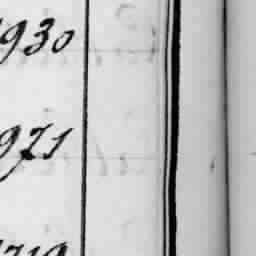 1930
971